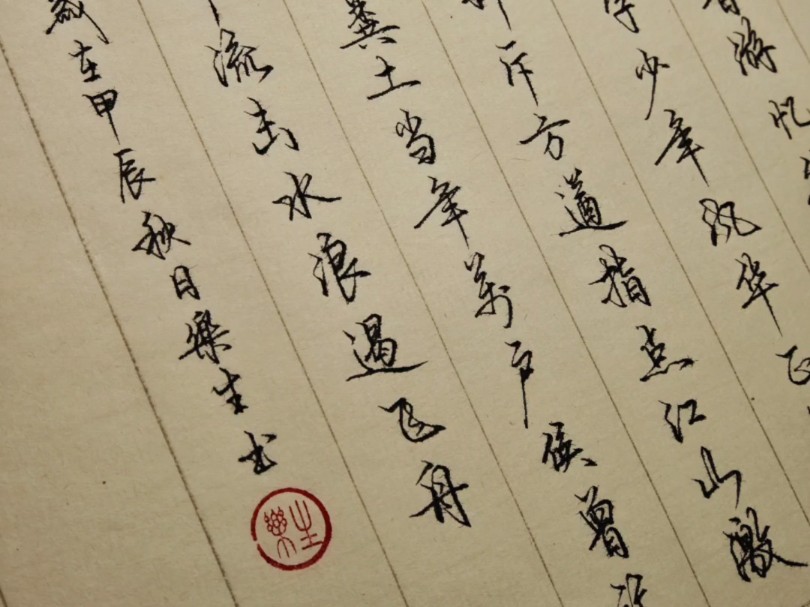 游忆
少年风华
斥方遒指点江山激
粪土当年萬户侯曾
流击水浪遏飞舟
在甲辰秋日樂生书
樂生